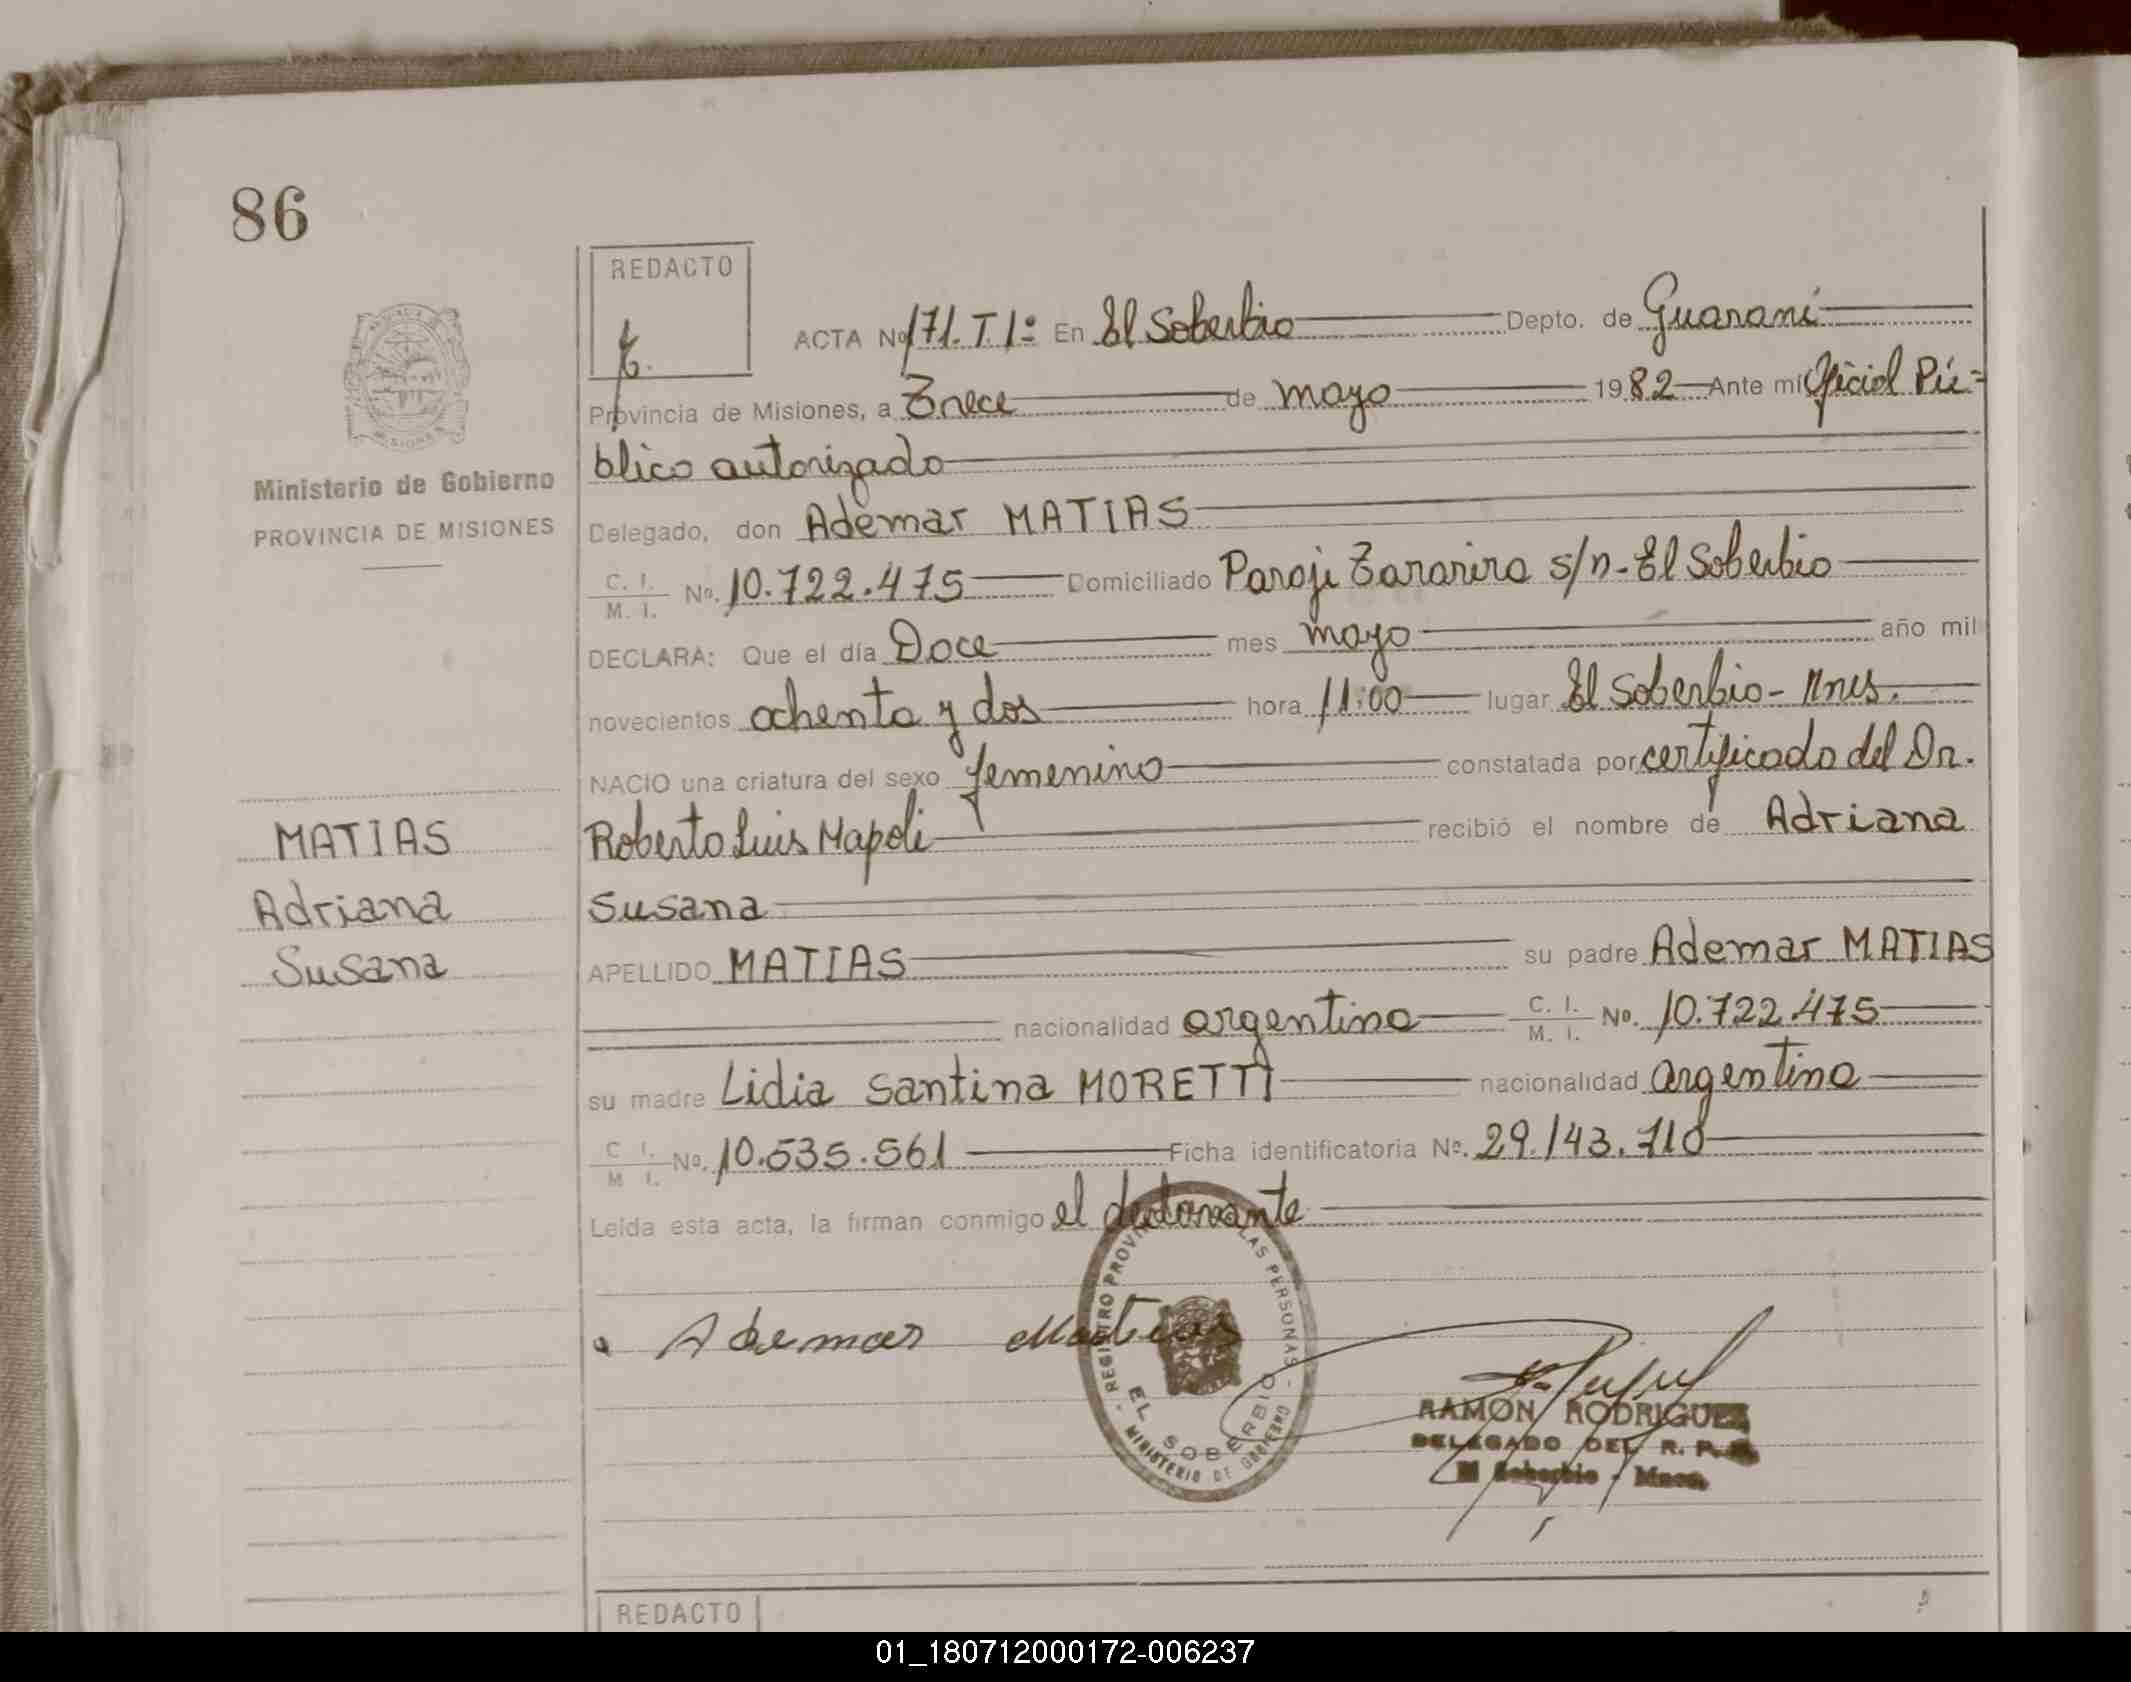 86
REDACTO
ACTA Nº 171.T.1º En El Soberbio Depto. de Guaraní
Provincia de Misiones, a Trece de mayo 1982 Ante mí Oficial Pú-
blico autorizado
Ministerio de Gobierno
PROVINCIA DE MISIONES
Delegado, don Ademar MATIAS
C. I.
M. I. Nº. 10.722.475 Domiciliado Paraje s/n - El Soberbio
DECLARA: Que el día Doce mes mayo año mil
novecientos ochenta y dos hora 11:00 lugar El Soberbio - Mnes.
NACIO una criatura del sexo femenino constatada por certificado del Dr.
MATIAS
Adriana
Susana
Roberto Luis Napoli recibió el nombre de Adriana
Susana
APELLIDO MATIAS su padre Ademar MATIAS
nacionalidad argentina C. I. M. I. Nº. 10.722.475
su madre Lidia Santina MORETTI nacionalidad argentina
C I. M I. Nº. 10.535.561 Ficha identificatoria Nº. 29.143.710
Leida esta acta, la firman conmigo el declarante
Ademar Matias
REGISTRO PROVIN LAS PERSONAS
EL SOBERBIO
MINISTERIO DE GOBIERNO
RAMON RODRIGUEZ
DELEGADO DEL R. P.
El Soberbio - Mnes.
REDACTO
01_180712000172-006237